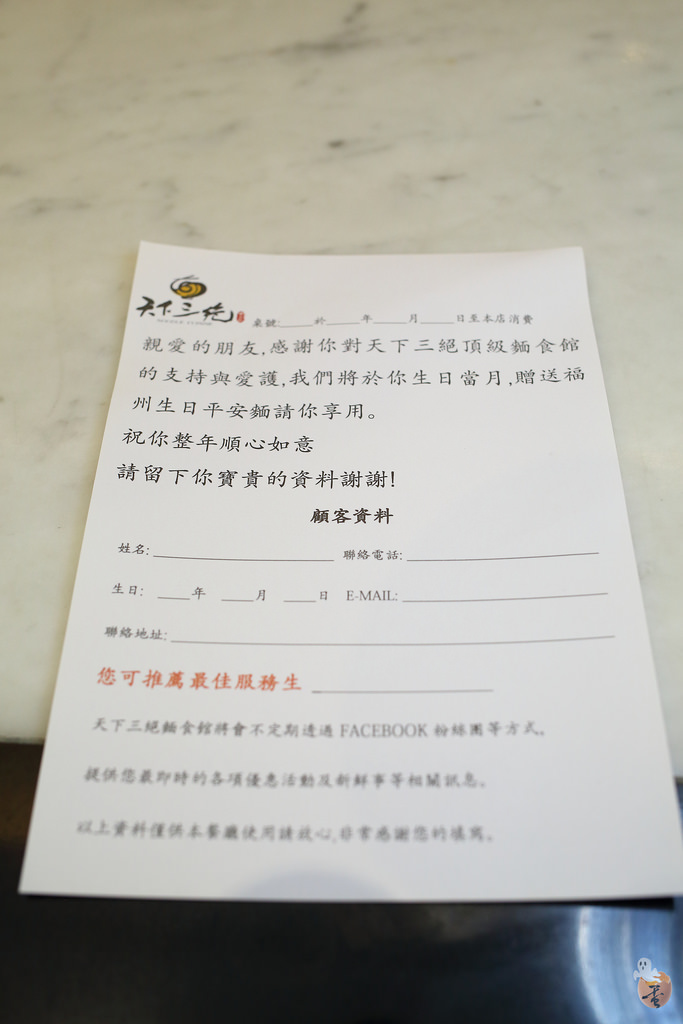 天下三絕
桌號:_____於_____年_____月_____日至本店消費
親愛的朋友,感謝你對天下三絕頂級麵食館
的支持與愛護,我們將於你生日當月,贈送福
州生日平安麵請你享用。
祝你整年順心如意
請留下你寶貴的資料謝謝!
顧客資料
姓名:__________ 聯絡電話:__________
生日: ____年 ____月 ____日 E-MAIL:__________
聯絡地址:__________
您可推薦最佳服務生__________
天下三絕麵食館將會不定期透過 FACEBOOK 粉絲團等方式,
提供您最即時的各項優惠活動及新鮮事等相關訊息。
以上資料僅供本餐廳使用請放心,非常感謝您的填寫。